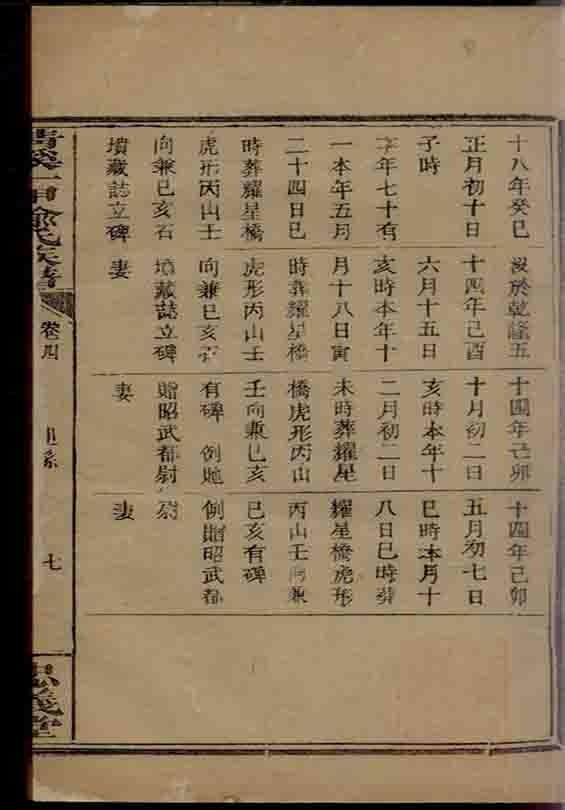 十八年癸巳
正月初十日
子時
卒年七十有
一本年五月
二十四日巳
時葬耀星橋
虎形丙山壬
向兼巳亥石
墳藏誌立碑
歿於乾隆五
十四年己酉
六月十五日
亥時本年十
月十八日寅
時葬耀星橋
虎形丙山壬
向兼巳亥石
墳藏誌立碑
妻
十四年己卯
十月初二日
亥時本年十
二月初二日
未時葬耀星
橋虎形丙山
壬向兼巳亥
有碑 例貤
贈昭武都尉
妻
十四年己卯
五月初七日
巳時本月十
八日巳時葬
耀星橋虎形
丙山壬向兼
巳亥有碑
例贈昭武都
尉
妻
氏族譜
卷四
世系
七
忠義堂